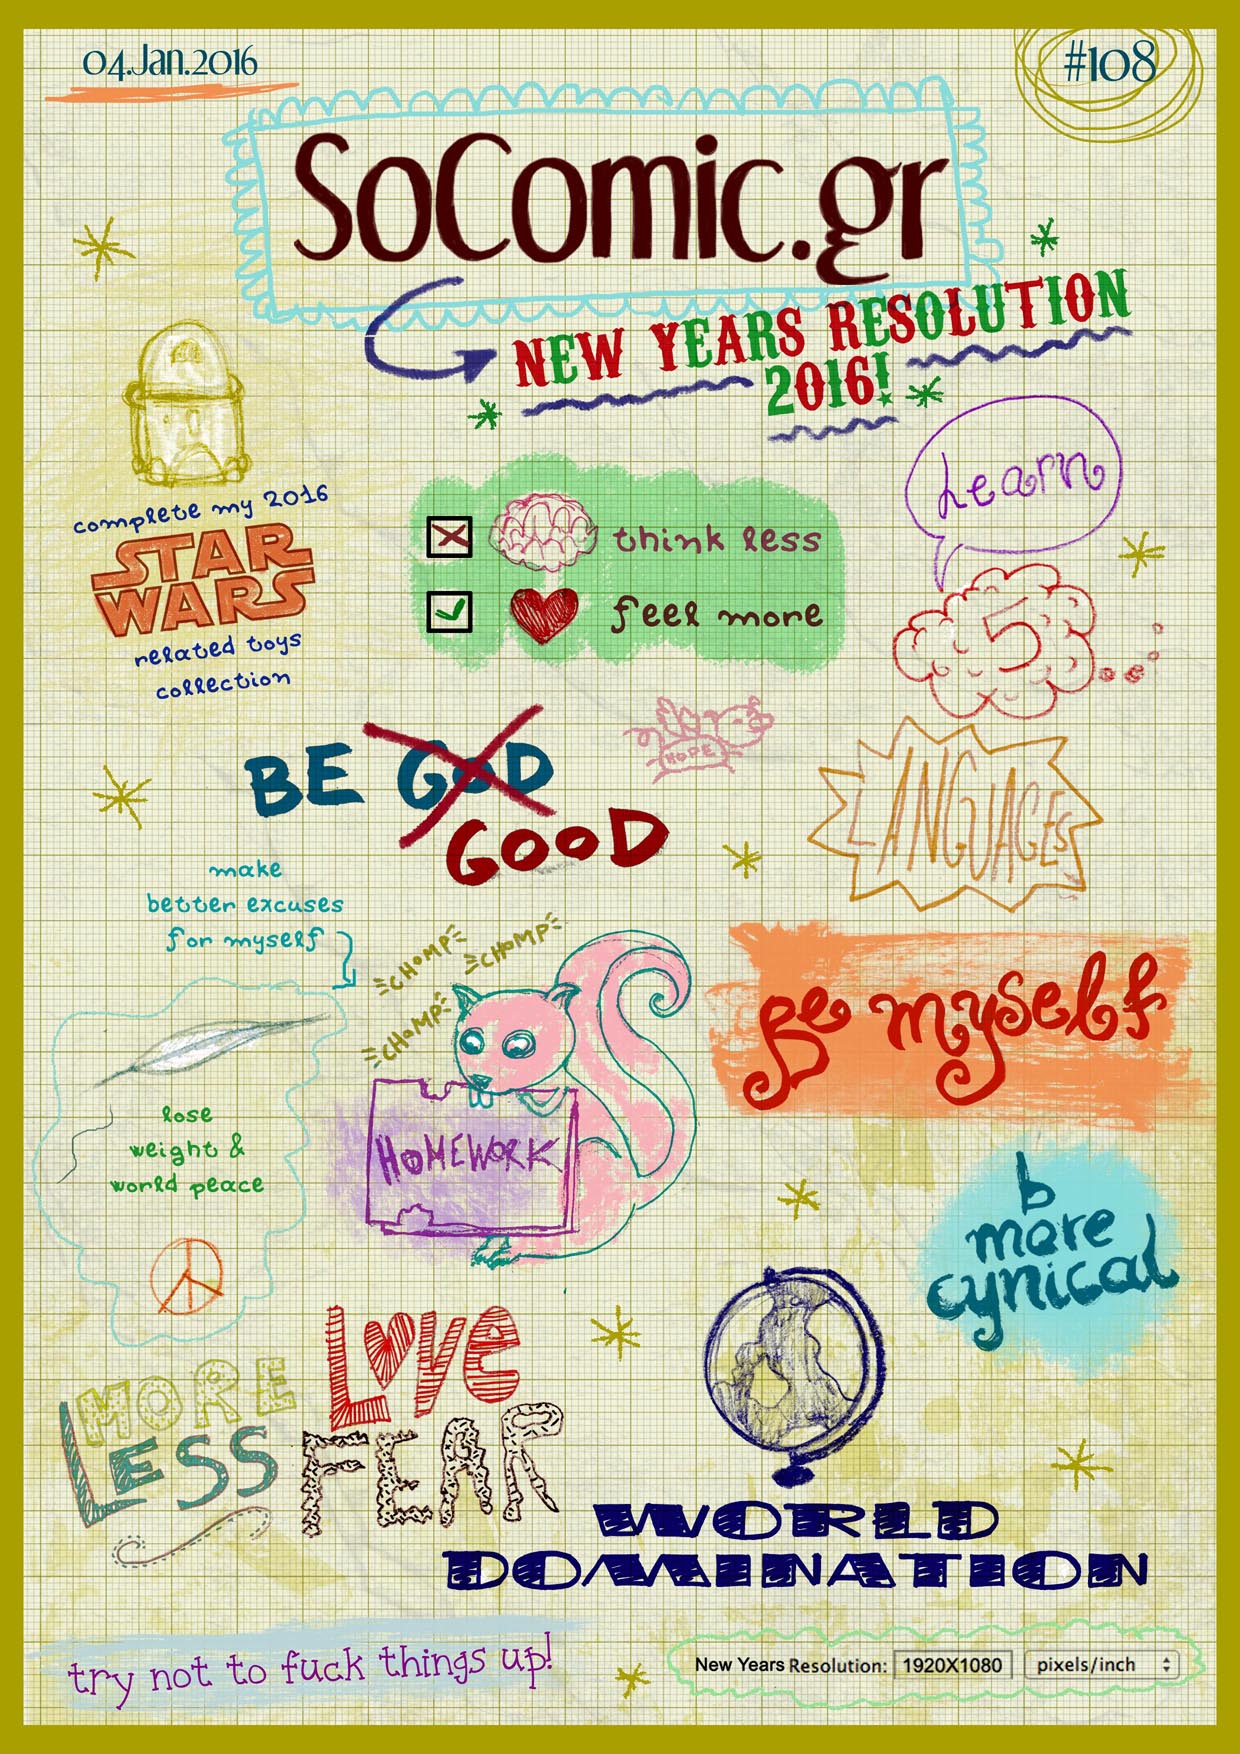 04.Jan.2016
#108
SoComic.gr
NEW YEARS RESOLUTION
2016!
complete my 2016
STAR
WARS
related toys
collection
think less
feel more
Learn
5
LANGUAGES
HOPE
BE GOD
GOOD
make
better excuses
for myself
CHOMP
CHOMP
CHOMP
HOMEWORK
Be myself
lose
weight &
world peace
b
more
cynical
MORE LOVE
LESS FEAR
WORLD
DOMINATION
try not to fuck things up!
New Years Resolution: 1920X1080 pixels/inch